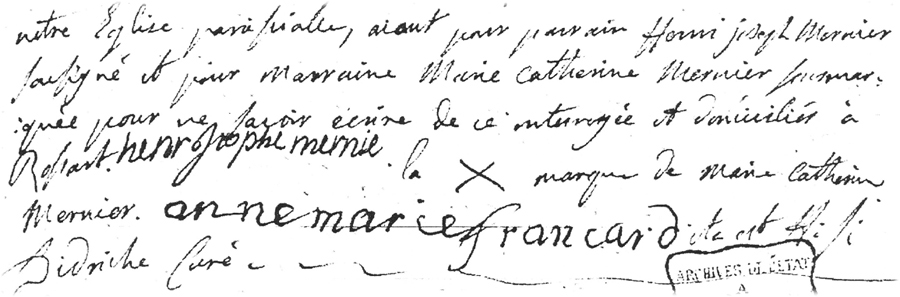 nôtre Eglise paroissialle, aiant pour parrain Henri joseph Mernier
sousigné et pour marraine Marie Catherine Mernier sousmar-
quée pour ne savoir écrire de ce interrogée et domiciliés à
Rossart. henri josephe mernie. la X marque de Marie Catherine
Mernier. anne marie francard ita est
Didriche Curé
ARCHIVES DE L'ÉTAT
A